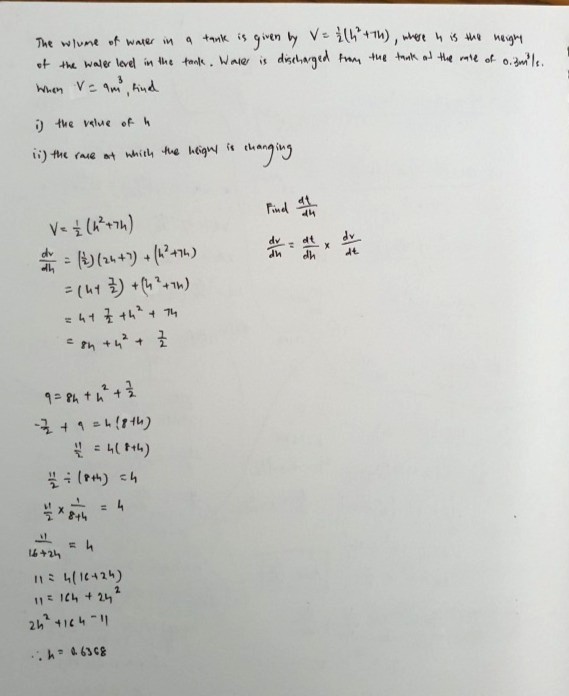 The volume of water in a tank is given by V = ½(h²+7h), where h is the height
of the water level in the tank. Water is discharged from the tank at the rate of 0.3m³/s.
When V = 9m³, find
i) the value of h
ii) the rate at which the height is changing
V = ½(h²+7h)
dv/dh = (½)(2h+7) + (h²+7h)
= (h+ 7/2) + (h²+7h)
= h + 7/2 + h² + 7h
= 8h + h² + 7/2
9 = 8h + h² + 7/2
-7/2 + 9 = h(8+h)
11/2 = h(8+h)
11/2 ÷ (8+h) = h
11/2 × 1/8+h = h
11/16+2h = h
11 = h(16+2h)
11 = 16h + 2h²
2h² + 16h - 11
∴ h = 0.6368
Find dt/dh
dv/dh = dt/dh × dv/dt